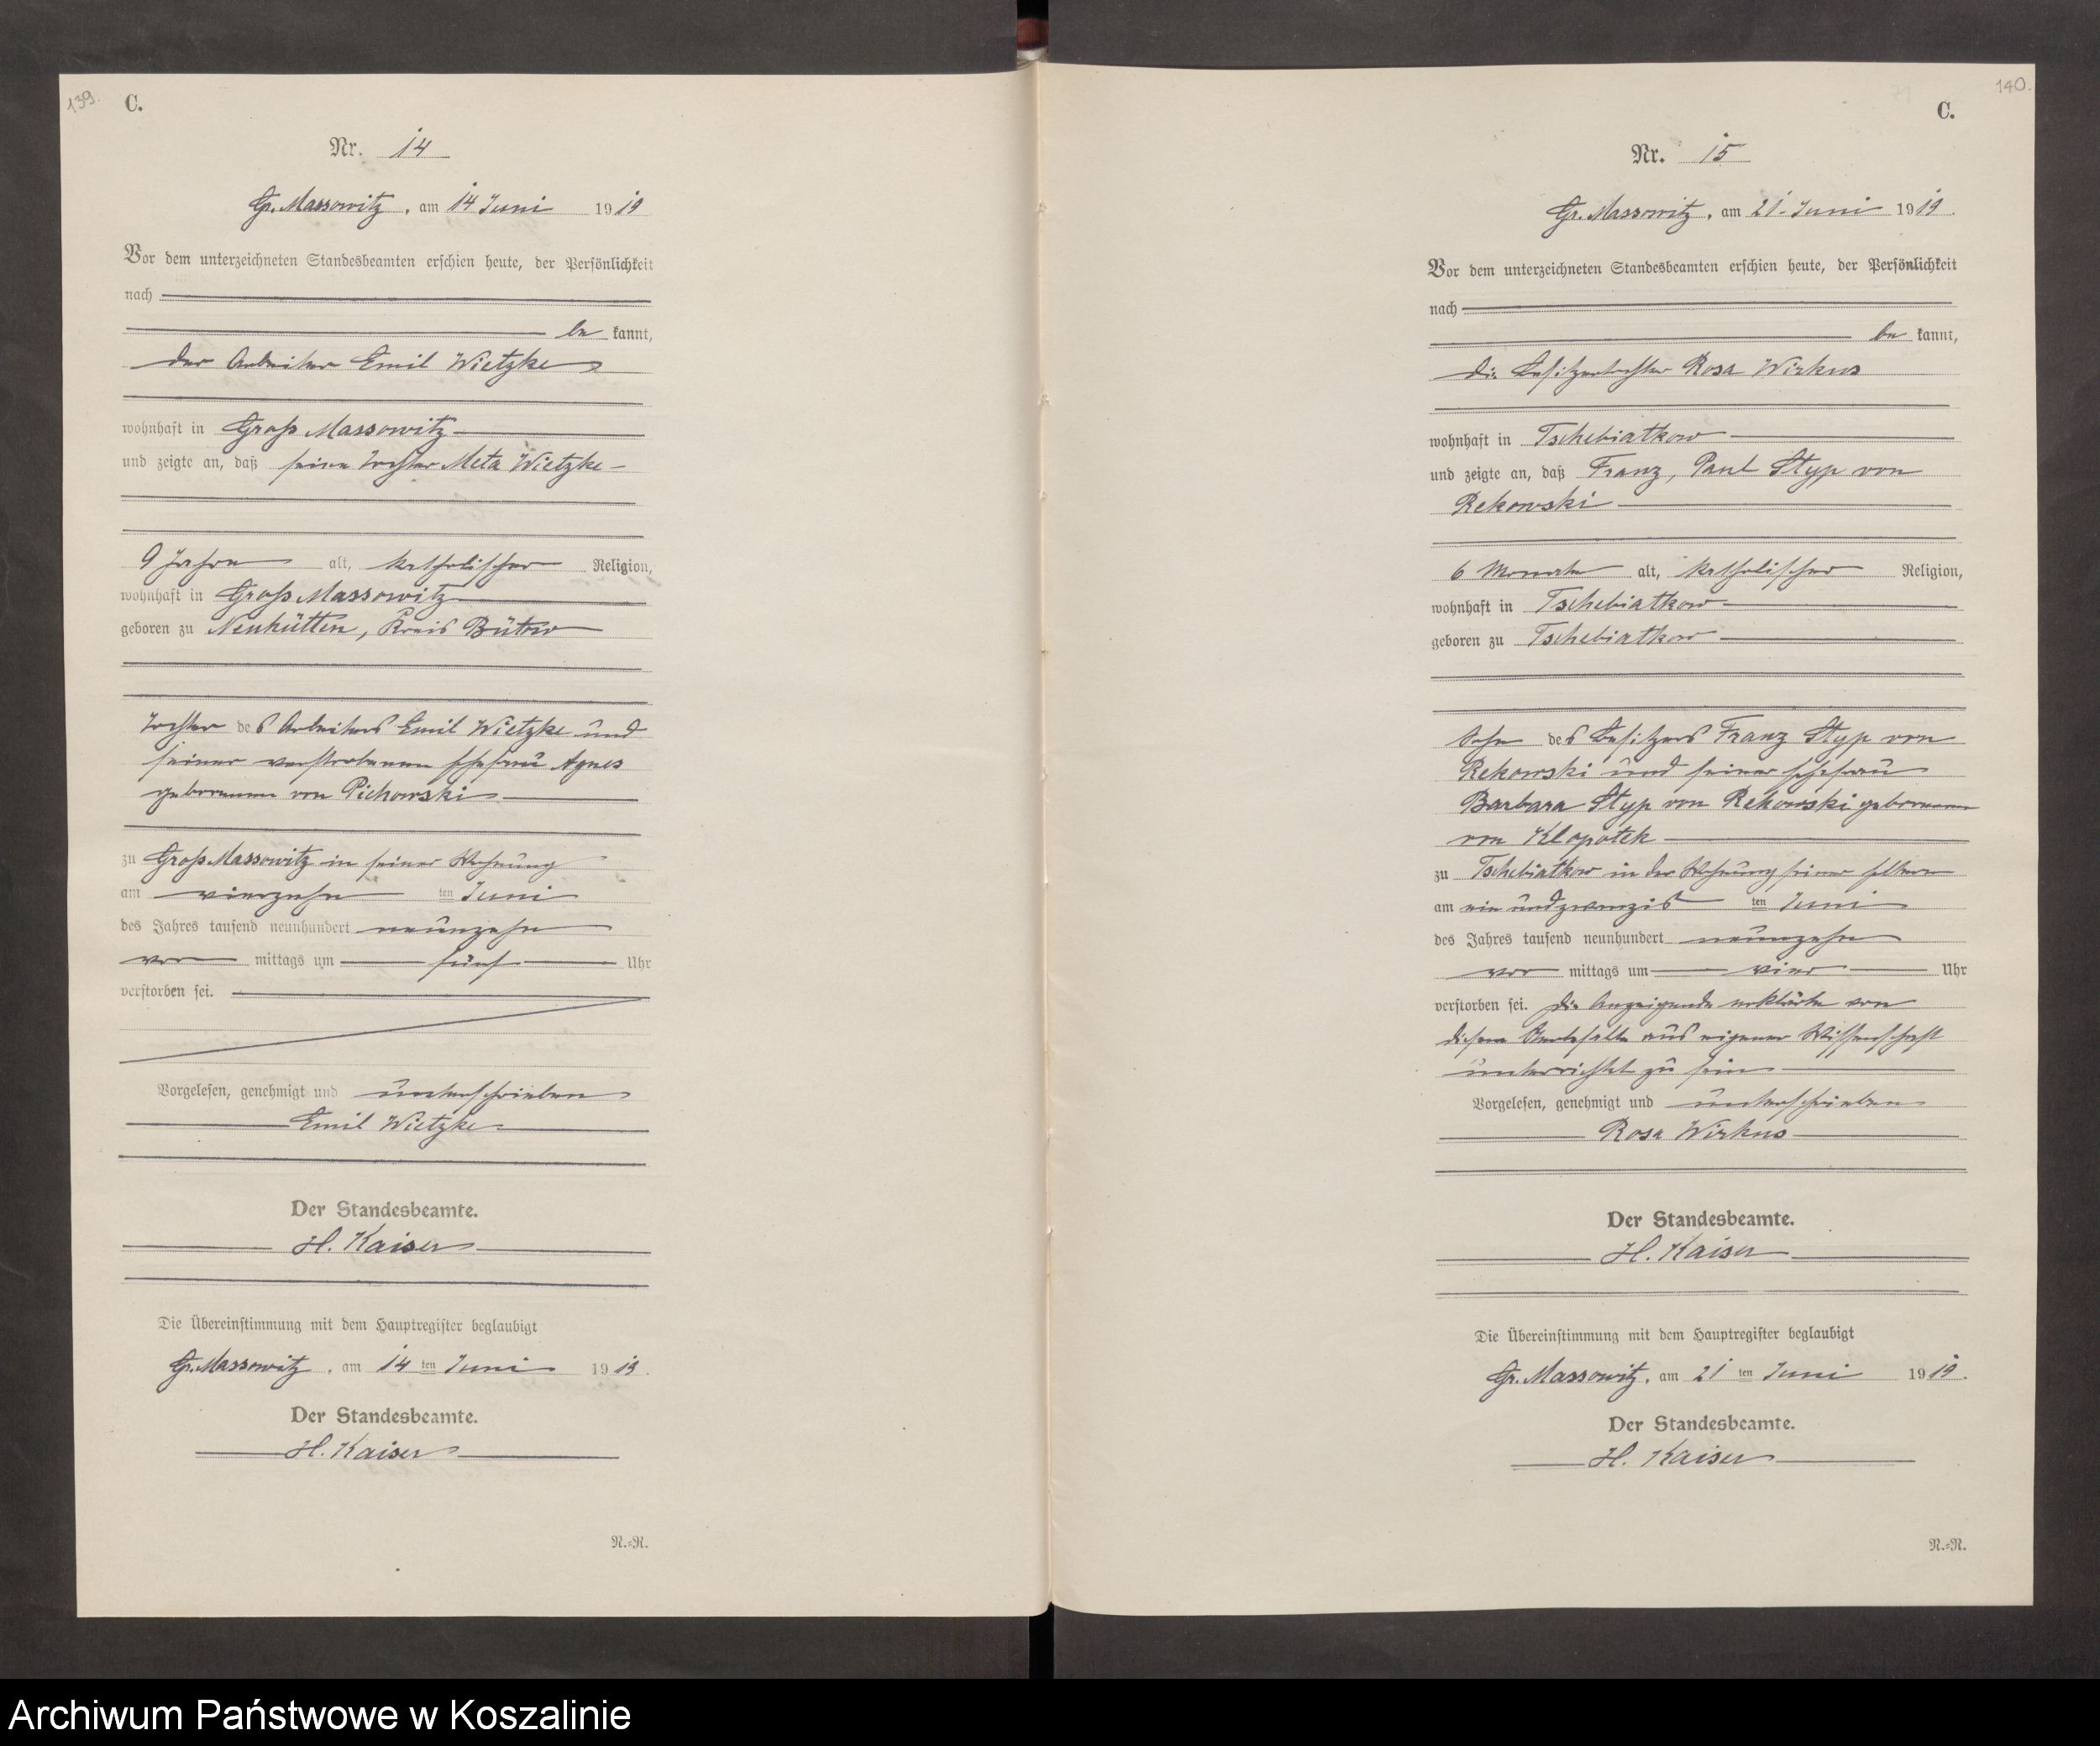 139.
C.
Nr. 14
Gr. Massowitz, am 14 Juni 1919
Vor dem unterzeichneten Standesbeamten erschien heute, der Persönlichkeit
nach
be kannt,
der Arbeiter Emil Wietzke
wohnhaft in Groß Massowitz
und zeigte an, daß seine Tochter Meta Wietzke
9 Jahre alt, katholischer Religion,
wohnhaft in Groß Massowitz
geboren zu Neuhütten, Kreis Bütow
Tochter des Arbeiters Emil Wietzke und
seiner verstorbenen Ehefrau Agnes
geborenen von Pichowski
zu Groß Massowitz in seiner Wohnung
am vierzehn ten Juni
des Jahres tausend neunhundert neunzehn
vor mittags um fünf Uhr
verstorben sei.
Vorgelesen, genehmigt und unterschrieben
Emil Wietzke
Der Standesbeamte.
H. Kaiser
Die Übereinstimmung mit dem Hauptregister beglaubigt
Gr. Massowitz, am 14 ten Juni 1919.
Der Standesbeamte.
H. Kaiser
N.=R.
140.
C.
Nr. 15
Gr. Massowitz, am 21. Juni 1919.
Vor dem unterzeichneten Standesbeamten erschien heute, der Persönlichkeit
nach
be kannt,
die Besitzertochter Rosa Wirkus
wohnhaft in Tschebiatkow
und zeigte an, daß Franz, Paul Styp von
Rekowski
6 Monate alt, katholischer Religion,
wohnhaft in Tschebiatkow
geboren zu Tschebiatkow
Sohn des Besitzers Franz Styp von
Rekowski und seiner Ehefrau
Barbara Styp von Rekowski geborenen
von Klopotek
zu Tschebiatkow in der Wohnung seiner Eltern
am ein und zwanzigs ten Juni
des Jahres tausend neunhundert neunzehn
vor mittags um vier Uhr
verstorben sei. Die Anzeigende erklärte von
diesem Sterbefalle aus eigener Wissenschaft
unterrichtet zu sein
Vorgelesen, genehmigt und unterschrieben
Rosa Wirkus
Der Standesbeamte.
H. Kaiser
Die Übereinstimmung mit dem Hauptregister beglaubigt
Gr. Massowitz, am 21 ten Juni 1919.
Der Standesbeamte.
H. Kaiser
N.=R.
Archiwum Państwowe w Koszalinie